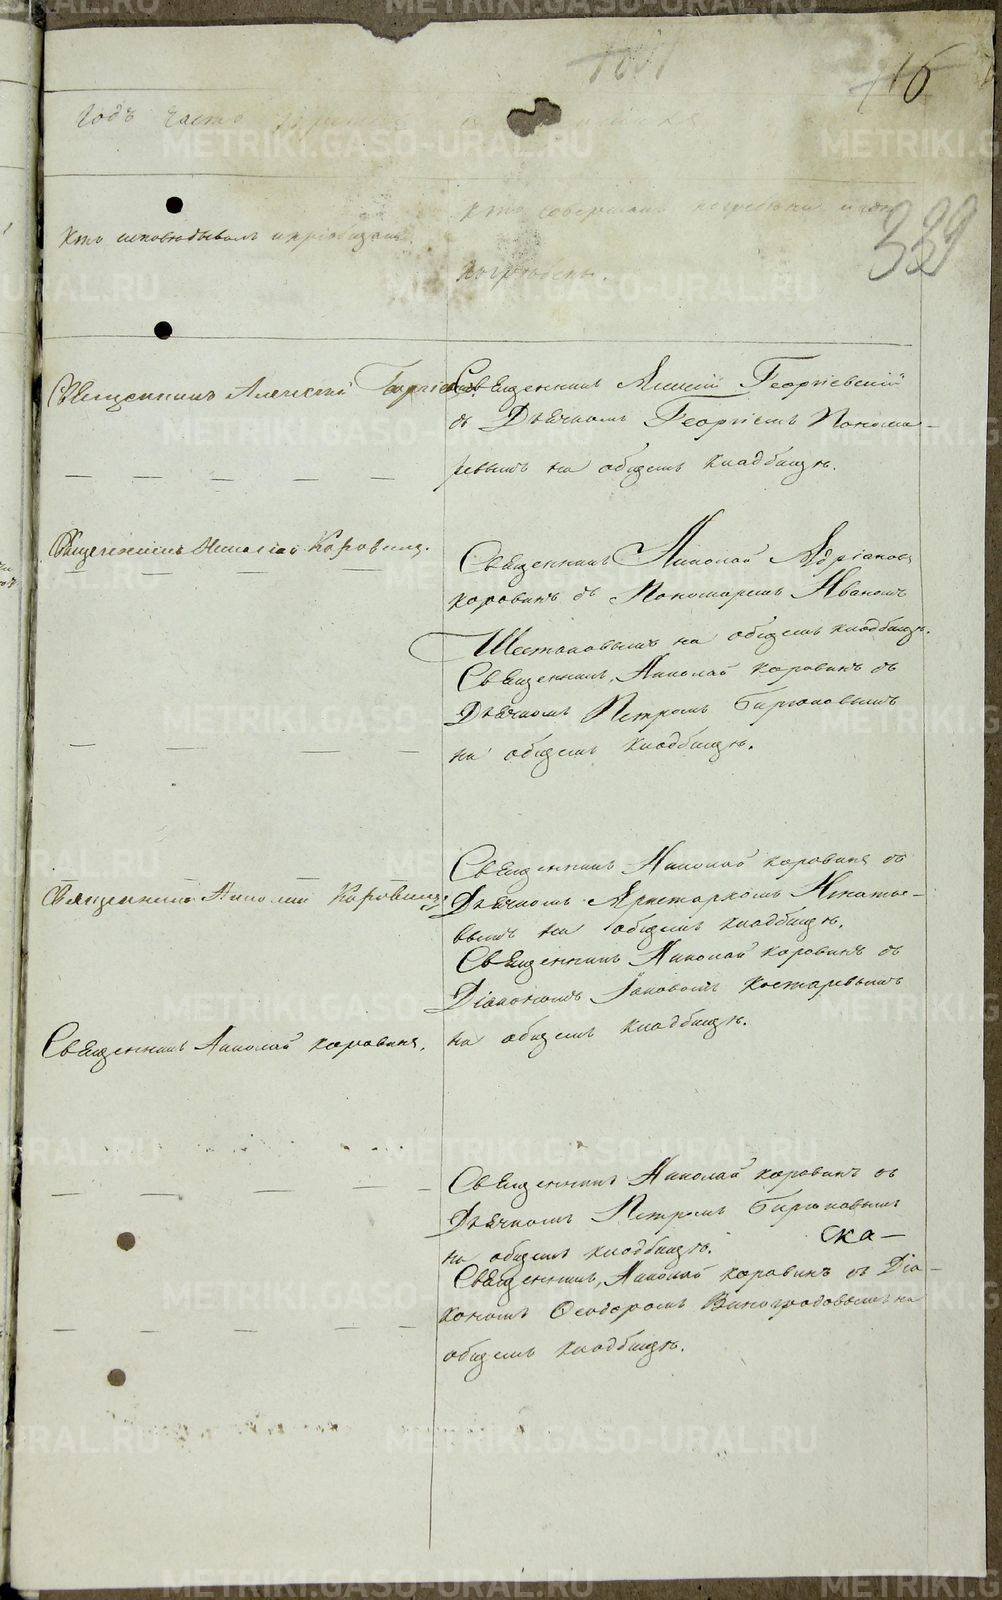 16
Годъ Часть третія
339
Кто исповѣдывалъ и пріобщалъ.
Кто совершалъ погребеніе и гдѣ
погребены.
Священникъ Алексѣй Георгіевскій
Священникъ Алексій Георгіевскій
съ Дьячкомъ Георгіемъ Понома-
ревымъ на общемъ кладбищѣ.
Священникъ Николай Коровинъ.
Священникъ Николай Адріановъ
Коровинъ съ Пономаремъ Иваномъ
Шестаковымъ на общемъ кладбищѣ.
Священникъ, Николай Коровинъ съ
Дьячкомъ Петромъ Бирюковымъ
на общемъ кладбищѣ.
Священникъ Николай Коровинъ
Священникъ Николай Коровинъ съ
Дьячкомъ Аристархомъ Игнатье-
вымъ на общемъ кладбищѣ.
Священникъ Николай Коровинъ съ
Діакономъ Іаковомъ Костаревымъ
на общемъ кладбищѣ.
Священникъ Николай Коровинъ.
Священникъ Николай Коровинъ съ
Дьячкомъ Петромъ Бирюковымъ
на общемъ кладбищѣ.
ска-
Священникъ, Николай Коровинъ съ Діа-
кономъ Ѳеодоромъ Виноградовымъ на
общемъ кладбищѣ.
METRIKI.GASO-URAL.RU